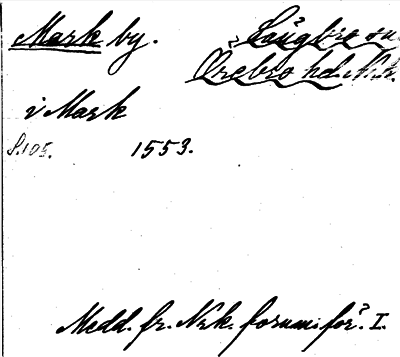 Mark by. Längbro sn
Örebro hd. Nrk.
i Mark
S. 105. 1553.
Medd. fr. Nrk. fornm:för. I.